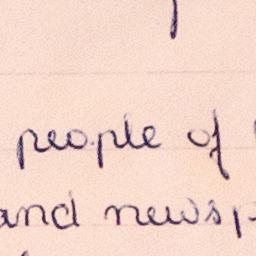 people of
and newsp